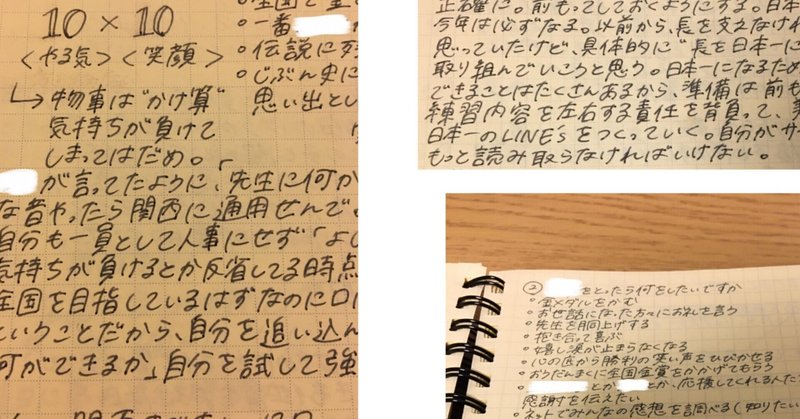 10×10
<やる気><笑顔>
↳物事は“かけ算”
気持ちが負けて
しまってはだめ。
が言ってたように、「先生に何か
な音やったら関西に通用せんで
自分も一員として人事にせず「よし
気持ちが負けるとか反省してる時点
全国を目指しているはずなのに口に
ということだから、自分を追い込ん
何ができるか」自分を試して強
・一番
・伝説に
・じぶん史に
思い出とし
正確に。前もってしておくようにする。日本
今年は必ずなる。以前から、長を支えなけれ
思っていたけど、具体的に“長を日本一に
取り組んでいこうと思う。日本一になるため
できることはたくさんあるから、準備は前も
練習内容を左右する責任を背負って、
日本一のLINEsをつくっていく。自分が
もっと読み取らなければいけない。
② をとったら何をしたいですか
・金メダルをかむ
・お世話になった方々にお礼を言う
・先生を胴上げする
・抱き合って喜ぶ
・嬉し涙が止まらなくなる
・心の底から勝利の笑い声をひびかせる
・おうだんまくに全国金賞をかかげてもらう
・ とか とか、応援してくれる人たち
感謝を伝えたい
・ネットでみんなの感想を調べる(知りたい